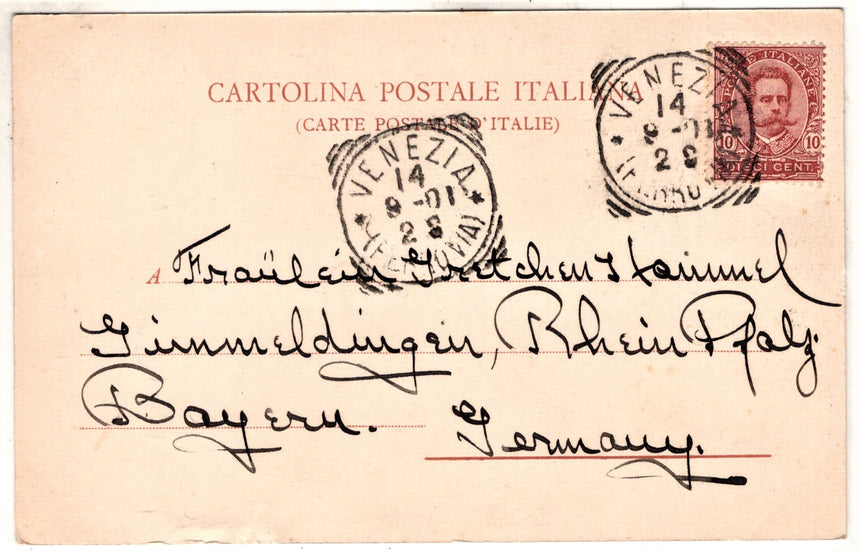 CARTOLINA POSTALE ITALIANA
(CARTE POSTALE D'ITALIE)
POSTE ITALIANE
10 10
DIECI CENT.
VENEZIA
14
9-01
2 S
(FERROVIA)
VENEZIA
14
9-01
2 S
(FERROVIA)
A Fraülein Gretchen Hammel
Gimmeldingen, Rhein Pfalz.
Bayern. Germany.